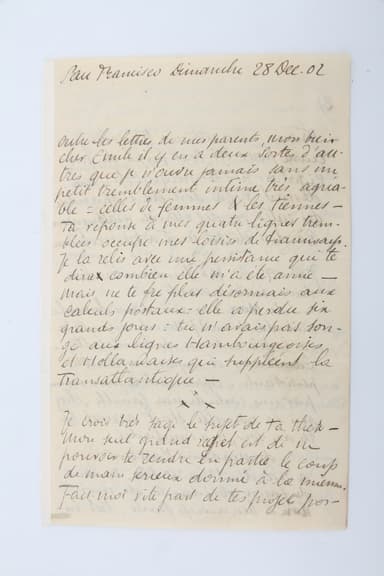 San Francisco Dimanche 28 Dec. 02
Outre les lettres de mes parents, mon bien
cher Emile il y en a deux sortes d'au-
tres que je n'ouvre jamais sans un
petit tremblement intime très agréa-
ble = celles de femmes & les tiennes -
Ta réponse à mes quatre lignes trem-
blées occupe mes loisirs de
Je la relis avec une persistance qui te
dira combien elle m'a été amie -
Mais ne te fie plus désormais aux
calculs postaux = elle a perdu six
grands jours = tu n'avais pas son-
gé aux lignes Hambourgeoises
et Hollandaises qui suppléent la
Transatlantique -
x x x
Je crois très sage le sujet de ta thèse -
Mon seul grand regret est de ne
pouvoir te rendre en partie le coup
de main sérieux donné à la mienne.
Fais moi vite part de tes projets pos-